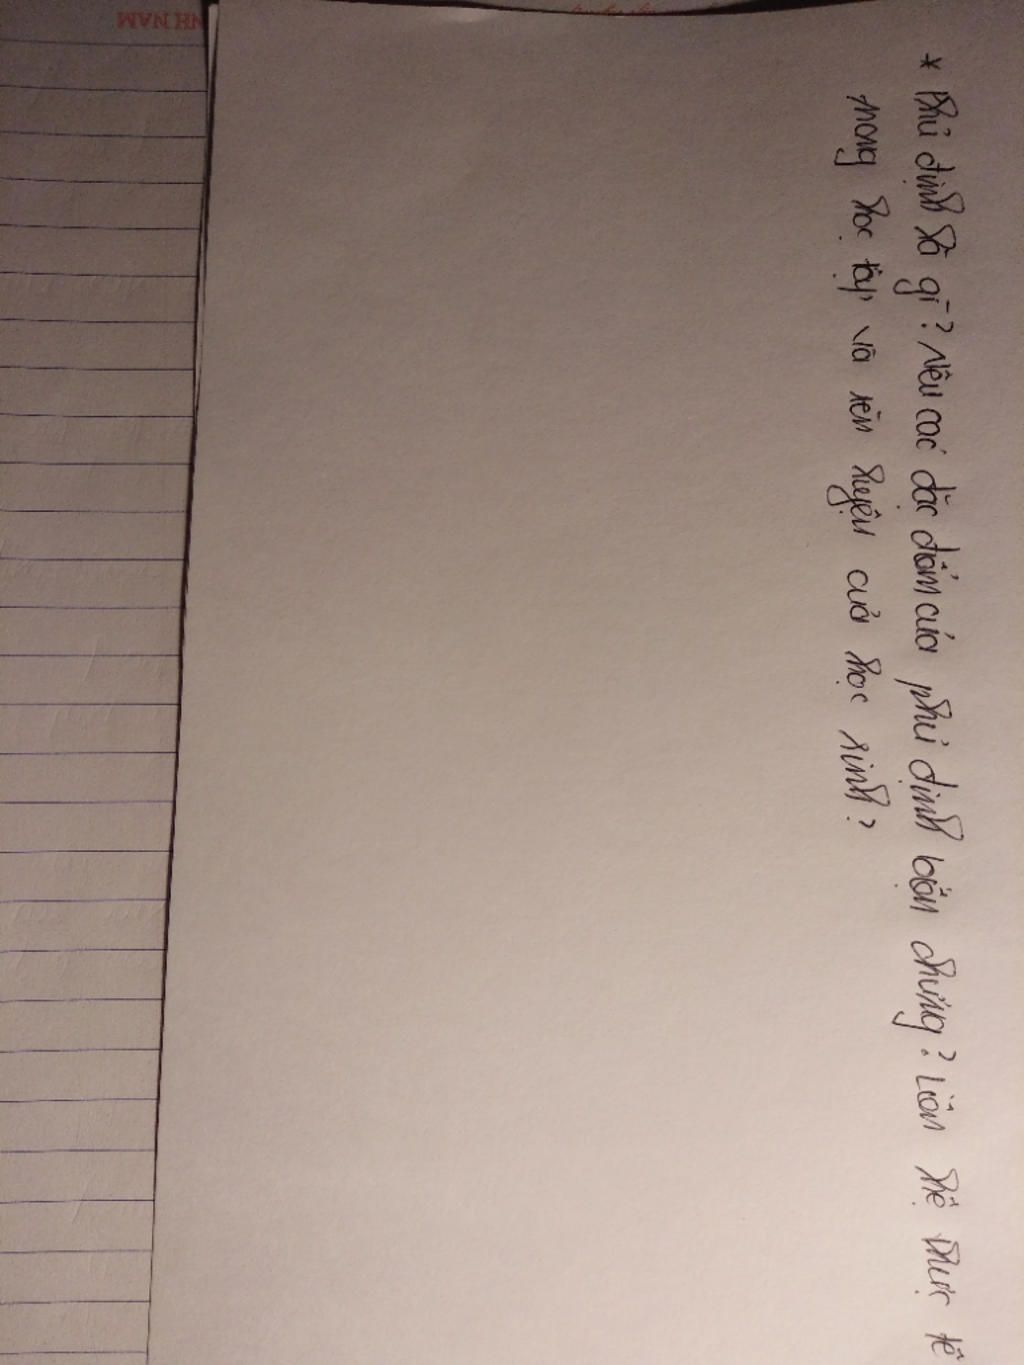 * Phủ định là gì? Nêu các đặc điểm của phủ định biện chứng? Liên hệ thực tế
trong học tập và rèn luyện của học sinh?
NH NAM